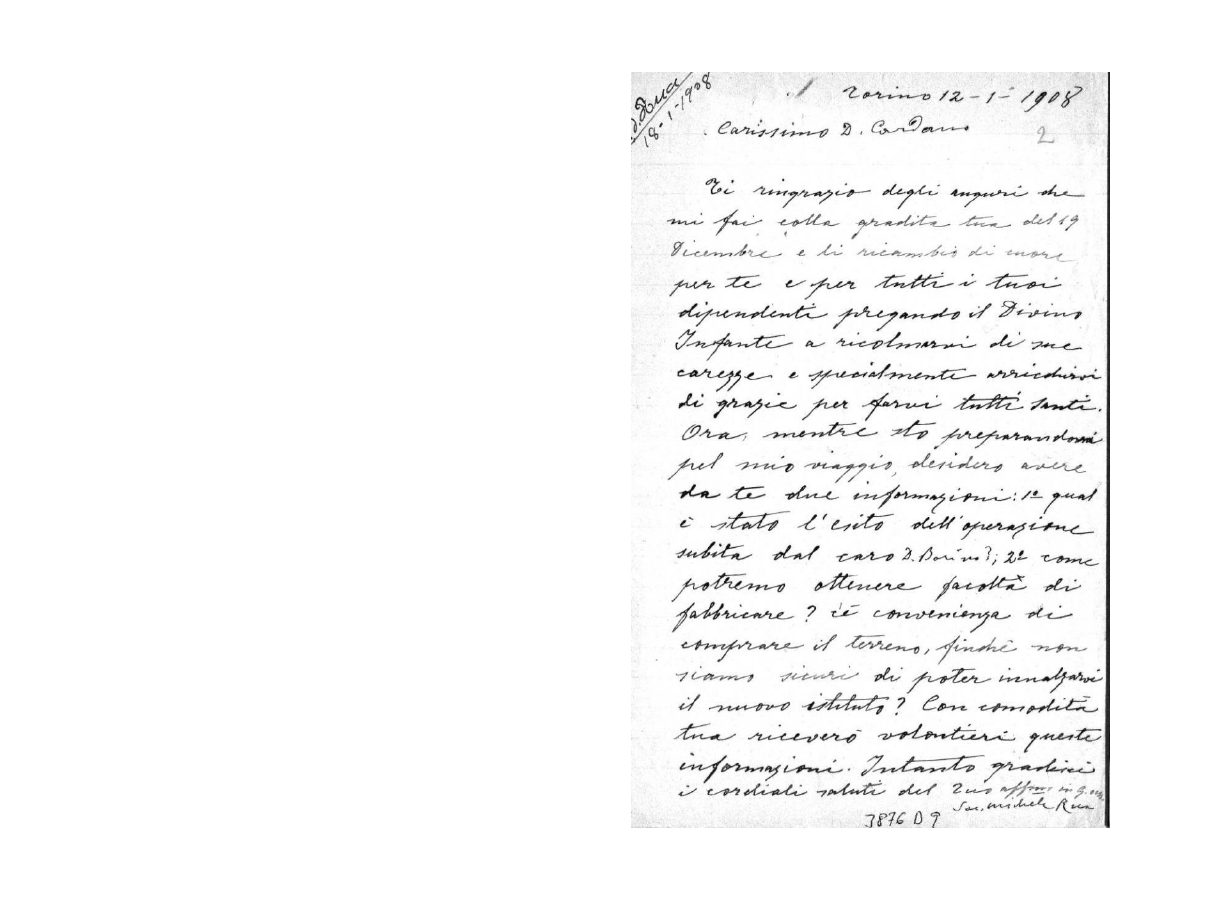 d. Rua
18-1-1908
Torino 12-1- 1908
Carissimo D. Cardano
2
Ti ringrazio degli auguri che
mi fai colla gradita tua del 19
Dicembre e li ricambio di cuore
per te e per tutti i tuoi
dipendenti pregando il Divino
Infante a ricolmarvi di sue
carezze e specialmente arricchirvi
di grazie per farvi tutti santi.
Ora, mentre sto preparandomi
pel mio viaggio, desidero avere
da te due informazioni: 1º qual
è stato l'esito dell'operazione
subita dal caro D. Borino?; 2º come
potremo ottenere facoltà di
fabbricare? c'è convenienza di
comprare il terreno, finchè non
siamo sicuri di poter innalzarvi
il nuovo istituto? Con comodità
tua riceverò volontieri queste
informazioni. Intanto gradisci
i cordiali saluti del Tuo affmo in G. e M.
Sac. Michele Rua
3876 D 9